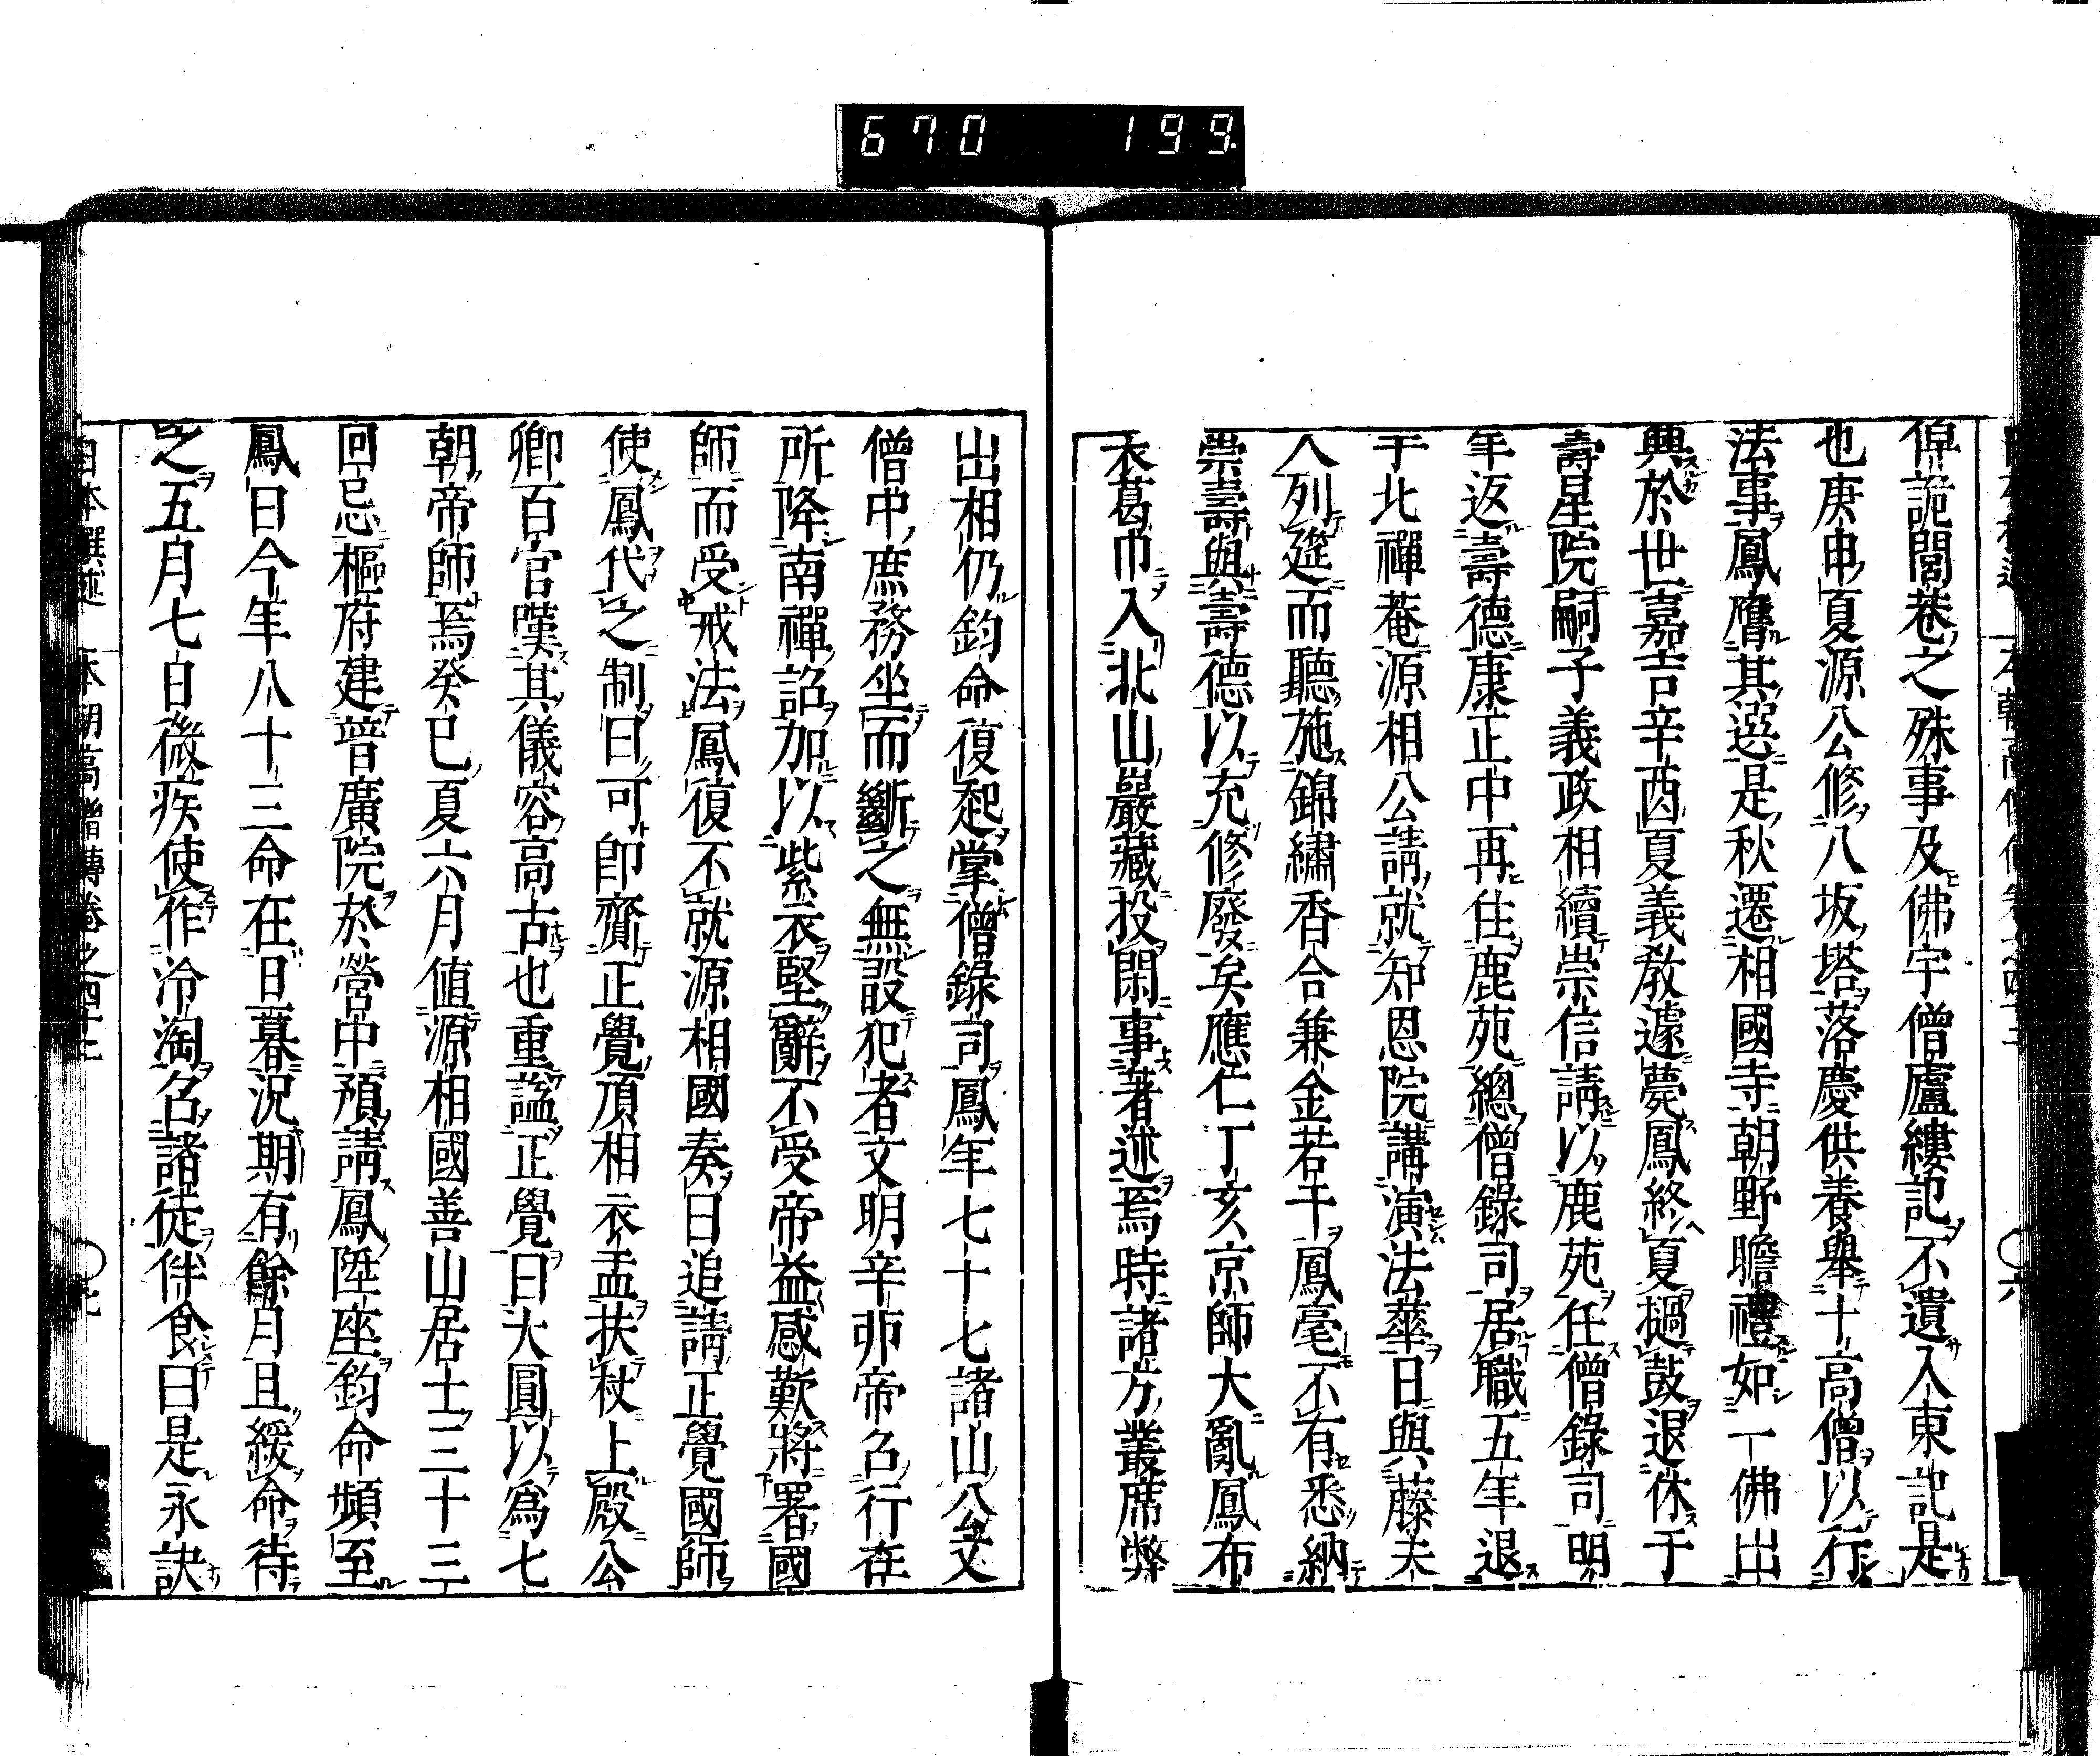 670 199
偉詭閭巷之殊事及佛宇僧廬縷記不遺入東記是
也庚申夏源公修八坂塔落慶供養舉十高僧以行
法事鳳膺其選是秋遷相國寺朝野瞻禮如一佛出
興於世嘉吉辛酉夏義教遽薨鳳終夏撾鼓退休于
壽星院嗣子義政相續崇信請以鹿苑任僧錄司明
年返壽德康正中再住鹿苑總僧錄司居職五年退
于北禪菴源相公請就知恩院講演法華日與藤夫
人列筵而聽施錦繡香合兼金若干鳳毫不有悉納
崇壽與壽德以充修廢矣應仁丁亥京師大亂鳳布
衣葛巾入北山巖藏投閑事著述焉時諸方叢席弊
出相仍鈞命復起掌僧錄司鳳年七十七諸山公文
僧中庶務坐而斷之無設犯者文明辛卯帝召行在
所降南禪詔加以紫衣堅辭不受帝益感歎將署國
師而受戒法鳳復不就源相國奏曰追請正覺國師
使鳳代之制曰可即齎正覺頂相衣盂扶杖上殿公
卿百官嘆其儀容高古也重謚正覺曰大圓以為七
朝帝師焉癸巳夏六月値源相國善山居士三十三
回忌樞府建普廣院於營中預請鳳陞座鈞命頻至
鳳曰今年八十三命在旦暮況期有餘月且緩命待
之五月七日微疾使作冷淘召諸徒伴食曰是永訣
日本撰述 本朝高僧傳卷之四十二 〇七